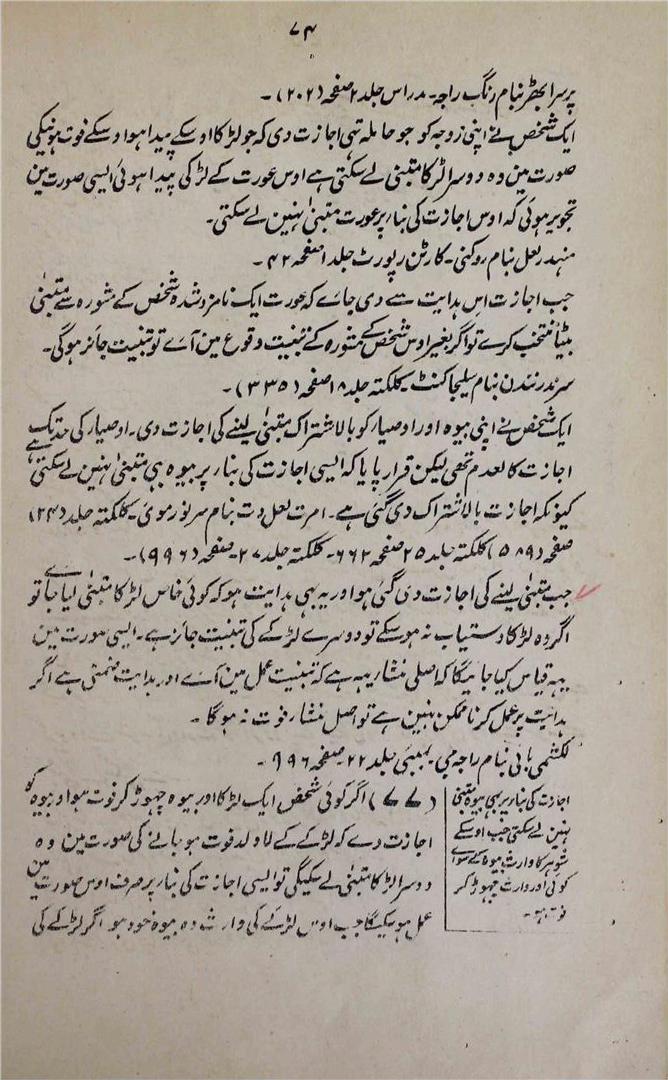 ۷۴
پرسرا بھٹر بنام رنگ راجہ۔ مدراس جلد ۲ صفحہ (۲۰۲)۔
ایک شخص نے اپنی زوجہ کو جو حاملہ تہی اجازت دی کہ جو لڑکا اوسکے پیدا ہو اوسکے فوت ہونیکی
صورت مین وہ دوسرا لڑکا متبنیٰ لے سکتی ہے اوس عورت کے لڑکی پیدا ہوئی ایسی صورت مین
تجویز ہوئی کہ اوس اجازت کی بناء پر عورت متبنیٰ نہین لے سکتی۔
منہدر لعل بنام روکنی۔ کارٹن رپورٹ جلد ۱ صفحہ ۴۲۔
جب اجازت اس ہدایت سے دی جاے کہ عورت ایک نامزد شدہ شخص کے مشورہ سے متبنیٰ
بیٹا منتخب کرے تو اگر بغیر اوس شخص کے مشورہ کے تبنیت وقوع مین آے تو تبنیت جائز ہوگی۔
سرندر نندن بنام سیلجا کنٹ۔ کلکتہ جلد ۱۸ صفحہ (۳۳۵)۔
ایک شخص نے اپنی بیوہ اور اوصیار کو بالاشتراک متبنیٰ لینے کی اجازت دی۔ اوصیار کی حد تک
اجازت کالعدم تھی لیکن قرار پایا کہ ایسی اجازت کی بناء پر بیوہ بہی متبنیٰ نہین لے سکتی ہے
کیونکہ اجازت بالاشتراک دی گئی ہے۔ امرت لعل دت بنام سرنورموی۔ کلکتہ جلد (۲۴)
صفحہ (۵۸۹) کلکتہ جلد ۲۵ صفحہ ۶۶۲۔ کلکتہ جلد ۲۷۔ صفحہ (۹۹۶)۔
جب متبنیٰ لینے کی اجازت دی گئی ہو اور یہ بہی ہدایت ہو کہ کوئی خاص لڑکا متبنیٰ لیا جاے تو
اگر وہ لڑکا دستیاب نہ ہو سکے تو دوسرے لڑکے کی تبنیت جائز ہے۔ ایسی صورت مین
یہہ قیاس کیا جائیگا کہ اصلی منشار یہہ ہے کہ تبنیت عمل مین آے اور ہدایت ضمنی ہے اگر
ہدایت پر عمل کرنا ممکن نہین ہے تو اصل منشار فوت نہ ہوگا۔
لکشمی بائی بنام راجہ جی۔ بمبئی جلد ۲۲۔ صفحہ ۹۹۶۔
(۷۷) اگر کوئی شخص ایک لڑکا اور بیوہ چہوڑ کر فوت ہو اور بیوہ کو
اجازت دے کہ لڑکے کے لا ولد فوت ہو جانے کی صورت مین وہ
دوسرا لڑکا متبنیٰ لے سکیگی تو ایسی اجازت کی بناء پر صرف اوس صورت مین
عمل ہو سکیگا جب اوس لڑکے کی وارث وہ بیوہ خود ہو اگر لڑکے کی
اجازت کی بناء پر بہی بیوہ متبنیٰ
نہین لے سکتی جب اوسکے
شوہر کا وارث بیوہ کے سواے
کوئی اور وارث چہوڑ کر
فوت ہو۔